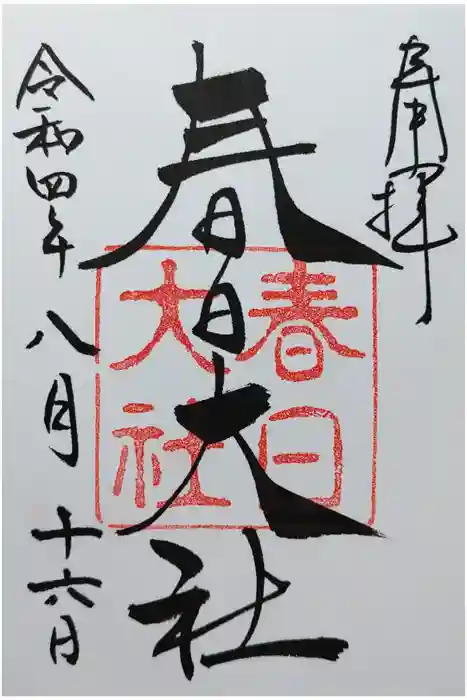 奉拝
春日大社
春日
大社
令和四年八月十六日